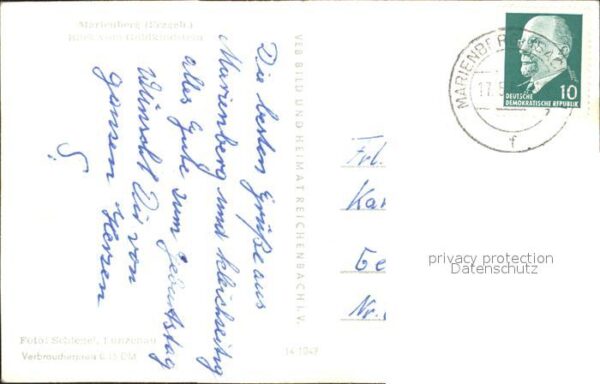 Marienberg (Erzgeb.)
Blick vom Goldkindstein
Die besten Grüße aus
Marienberg und kleichzeitig
alles Gute zum Geburtstag
Wünscht Dir von
ganzen Herzen
G.
VEB BILD UND HEIMAT REICHENBACH I. V.
Foto: Schlegel, Lunzenau
Verbraucherpreis 0.15 DM
14 1049
MARIENBERG
17.5
f
10
DEUTSCHE
DEMOKRATISCHE REPUBLIK
Frl.
Kar
Ge
Nr.
privacy protection
Datenschutz